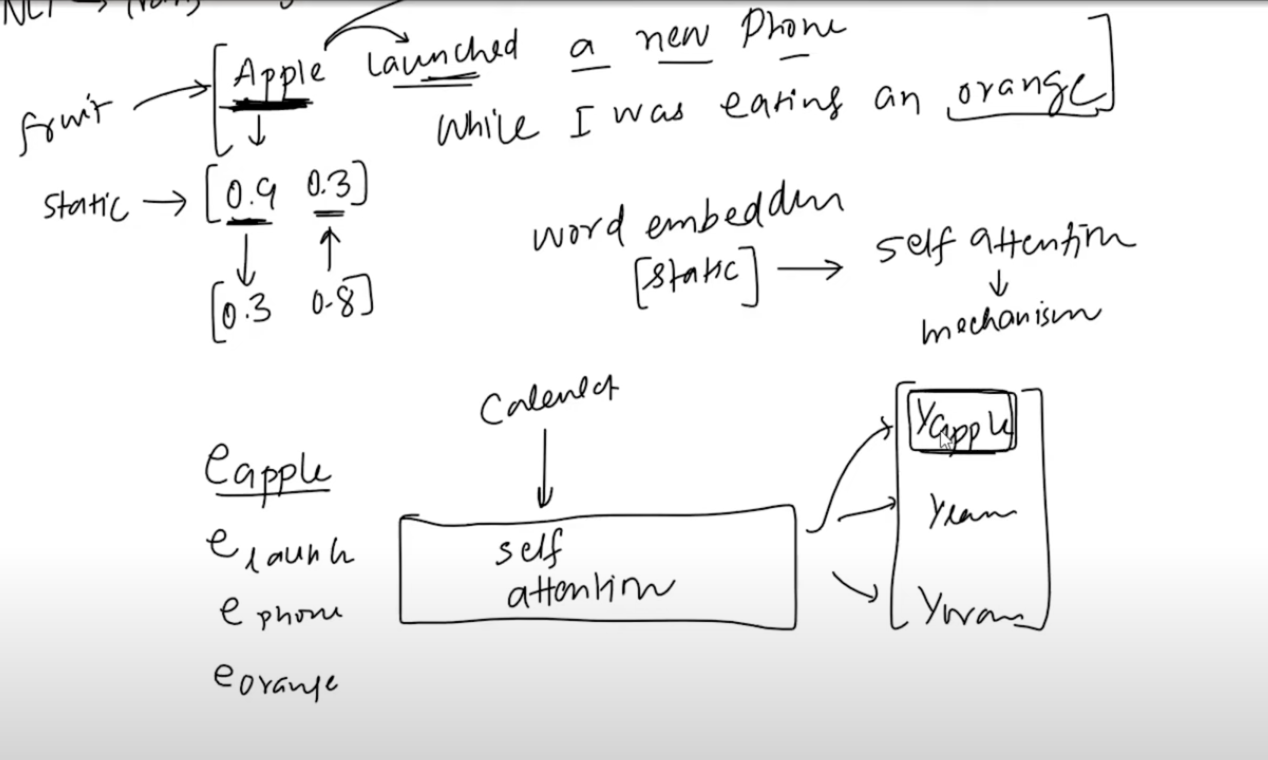 Apple launched a new Phone
fruit
while I was eating an orange
static → [0.9 0.3]
[0.3 0.8]
word embeddin
[static] → self attention
mechanism
e apple
e launch
e phone
e orange
self
attention
Yapple